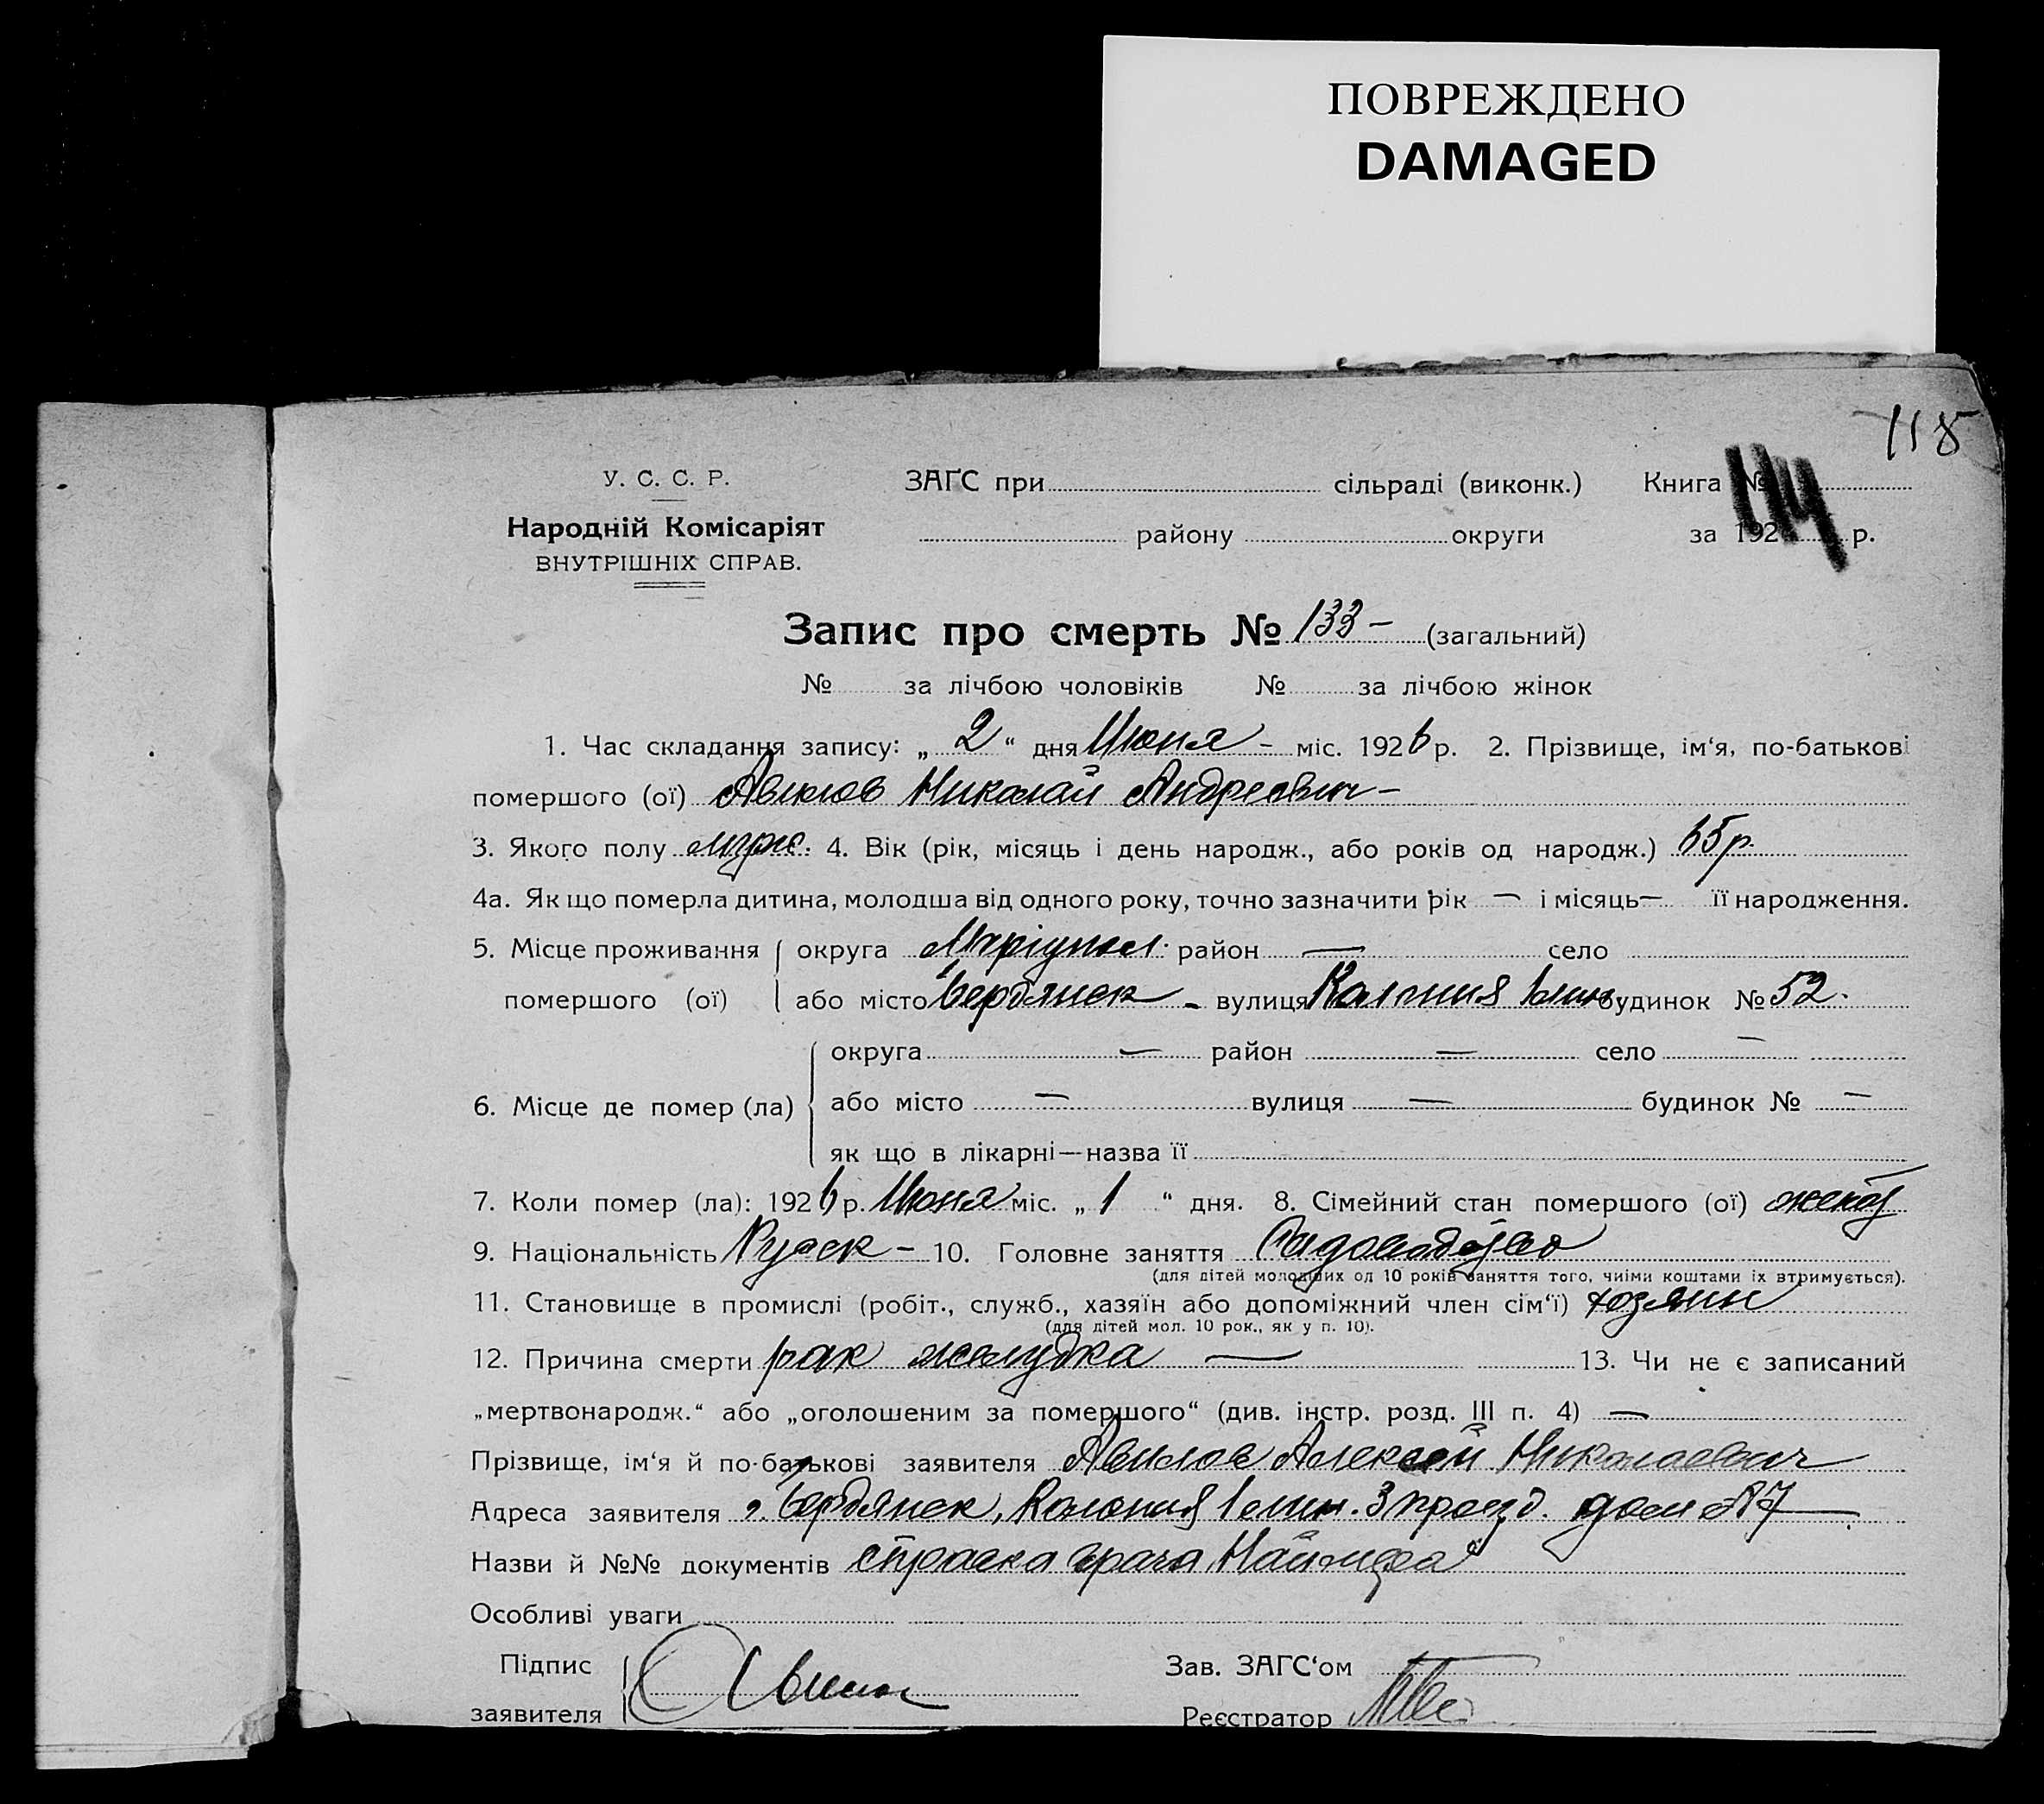 ПОВРЕЖДЕНО
DAMAGED
118
У. С. С. Р. ЗАҐС при сільраді (виконк.) Книга № 114
Народній Комісаріят району округи за 192 р.
ВНУТРІШНІХ СПРАВ.
Запис про смерть № 133 – (загальний)
№ за лічбою чоловіків № за лічбою жінок
1. Час складання запису: „ 2 “ дня Июня – міс. 1926 р. 2. Прізвище, ім‘я, по-батькові
помершого (ої) Авилов Николай Андреевич –
3. Якого полу муж. 4. Вік (рік, місяць і день народж., або років од народж.) 65 р.
4а. Як що померла дитина, молодша від одного року, точно зазначити рік — і місяць — її народження.
5. Місце проживання округа Маріупол. район — село
помершого (ої) або місто Бердянск – вулиця Колония будинок № 52.
округа — район — село —
6. Місце де помер (ла) або місто — вулиця — будинок № —
як що в лікарні—назва її
7. Коли помер (ла): 1926 р. Июня міс. „ 1 “ дня. 8. Сімейний стан помершого (ої) женат
9. Національність Руск – 10. Головне заняття
(для дітей молодших од 10 років заняття того, чиїми коштами їх втримується).
11. Становище в промислі (робіт., служб., хазяїн або допоміжний член сім‘ї) хозяин
(для дітей мол. 10 рок., як у п. 10).
12. Причина смерти рак желудка — 13. Чи не є записаний
„мертвонародж.“ або „оголошеним за помершого“ (див. інстр. розд. III п. 4) —
Прізвище, ім‘я й по-батькові заявителя Авилов Алексей Николаевич
Адреса заявителя г. Бердянск, Колония 3 проезд. дом №7
Назви й №№ документів справка врача
Особливі уваги
Підпис Зав. ЗАҐС‘ом
заявителя Реєстратор